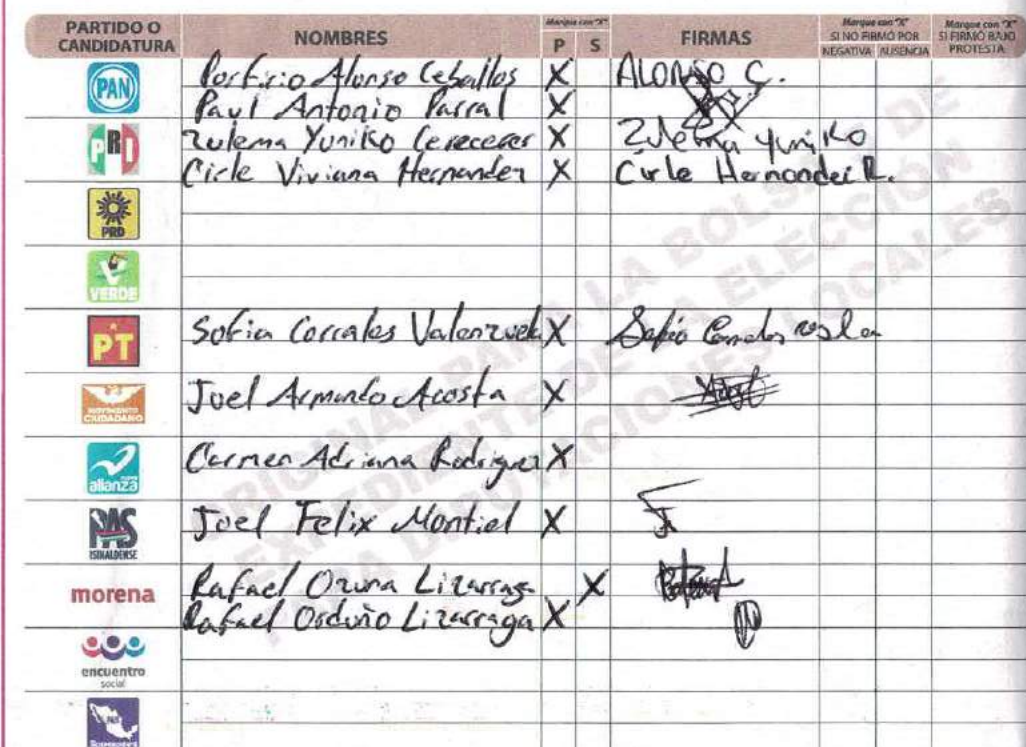 PARTIDO O CANDIDATURA NOMBRES Marque con "X" P S FIRMAS Marque con "X" SI NO FIRMÓ POR NEGATIVA AUSENCIA Marque con "X" SI FIRMÓ BAJO PROTESTA
PAN Porfirio Alonso Ceballos X ALONSO C.
Paul Antonio Parral X
PRI Zulema Yuniko Cereceres X Zulema Yuniko
Cirle Viviana Hernandez X Cirle Hernandez R.
PRD
VERDE
PT Sofia Corrales Valenzuela X
MOVIMIENTO CIUDADANO Joel Armando Acosta X
nueva alianza Carmen Adriana Rodriguez X
PAS SINALOENSE Joel Felix Montiel X
morena Rafael Ozuna Lizarraga X
Rafael Orduño Lizarraga X
encuentro social
ORIGINAL PARA LA BOLSA DE
EXPEDIENTE DE LA ELECCIÓN
PARA DIPUTACIONES LOCALES